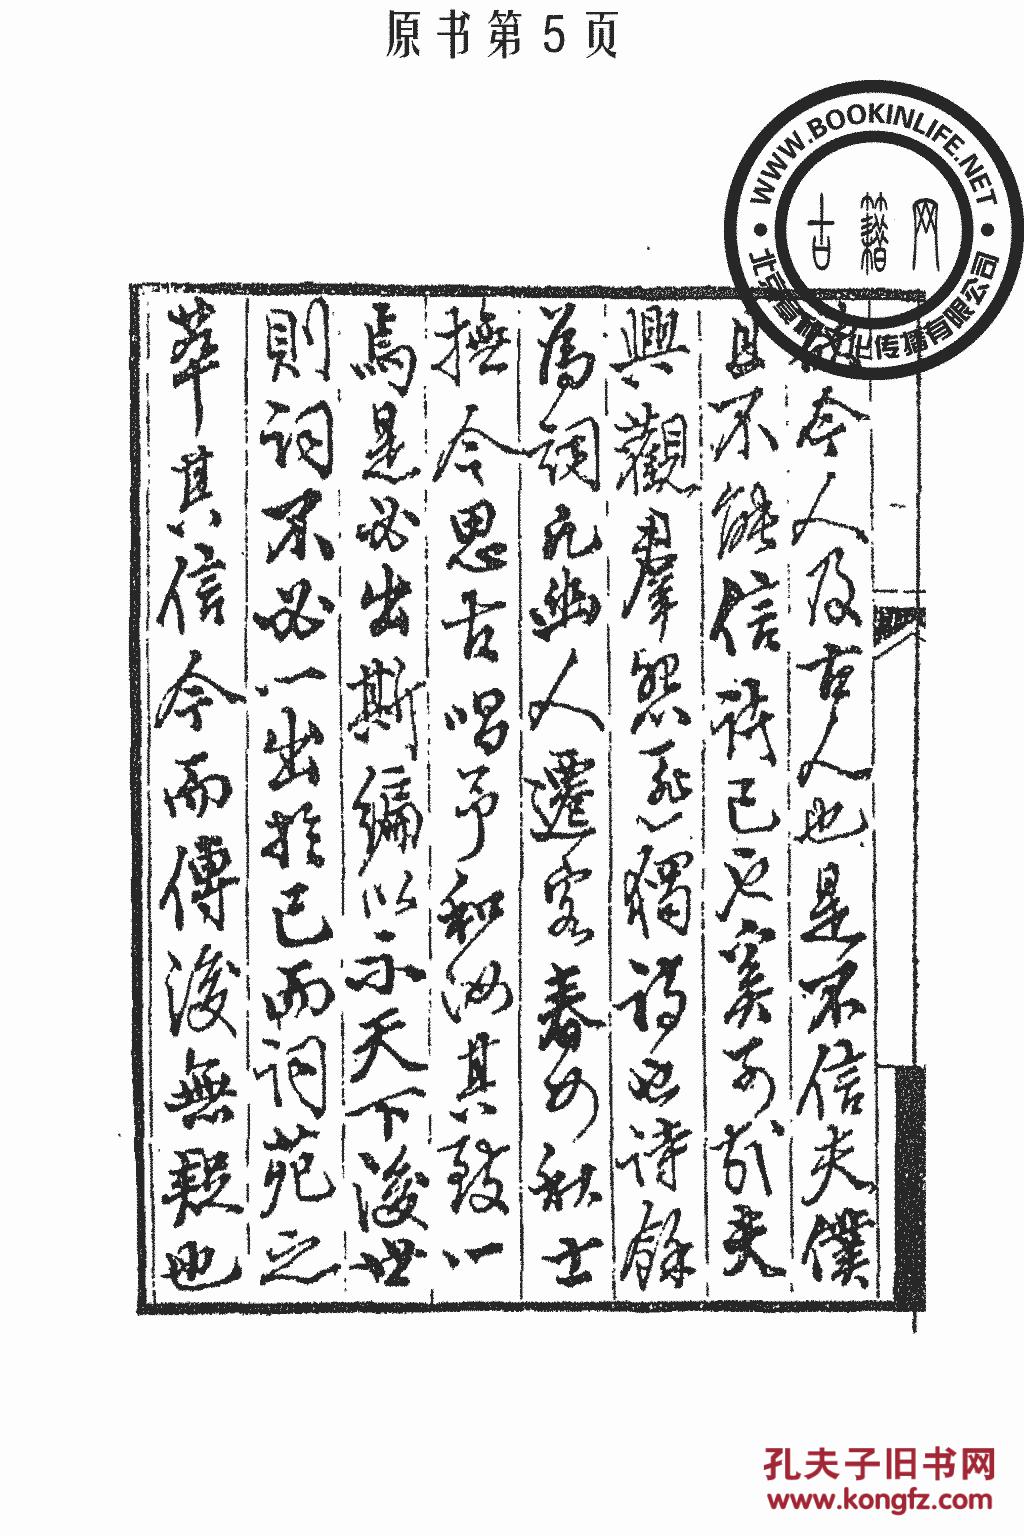 原书第5页
WWW.BOOKINLIFE.NET
古籍网
今人及古人也是不信天僕
且不能信詩已定矣予於夫
興觀羣怨不獨詩也詩餘
為詞凡幽人遷客春女秋士
撫今思古唱予和汝其致一
焉是必出斯編以示天下後世
則詞不必一出於已而詞苑之
萃其信今而傳後無疑也
孔夫子旧书网
www.kongfz.com